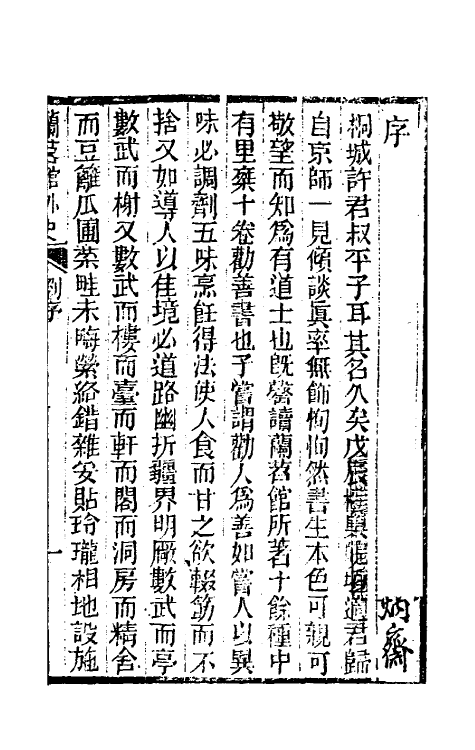 序
桐城許君叔平子耳其名久矣戊辰橅興徙垣適君歸
自京師一見傾談眞率無飾恂恂然書生本色可親可
敬望而知爲有道士也旣聲讀蘭苕館所著十餘種中
有里乘十卷勸善書也予嘗謂勸人爲善如嘗人以異
味必調劑五味烹飪得法使人食而甘之欲輟筯而不
捨又如導人以佳境必道路幽折疆界明厰數武而亭
數武而榭又數武而樓而臺而軒而閣而洞房而精舍
而豆籬瓜圃菜畦未畮縈絡錯雜安貼玲瓏相地設施
蘭苕館外史
序
一
炳齋